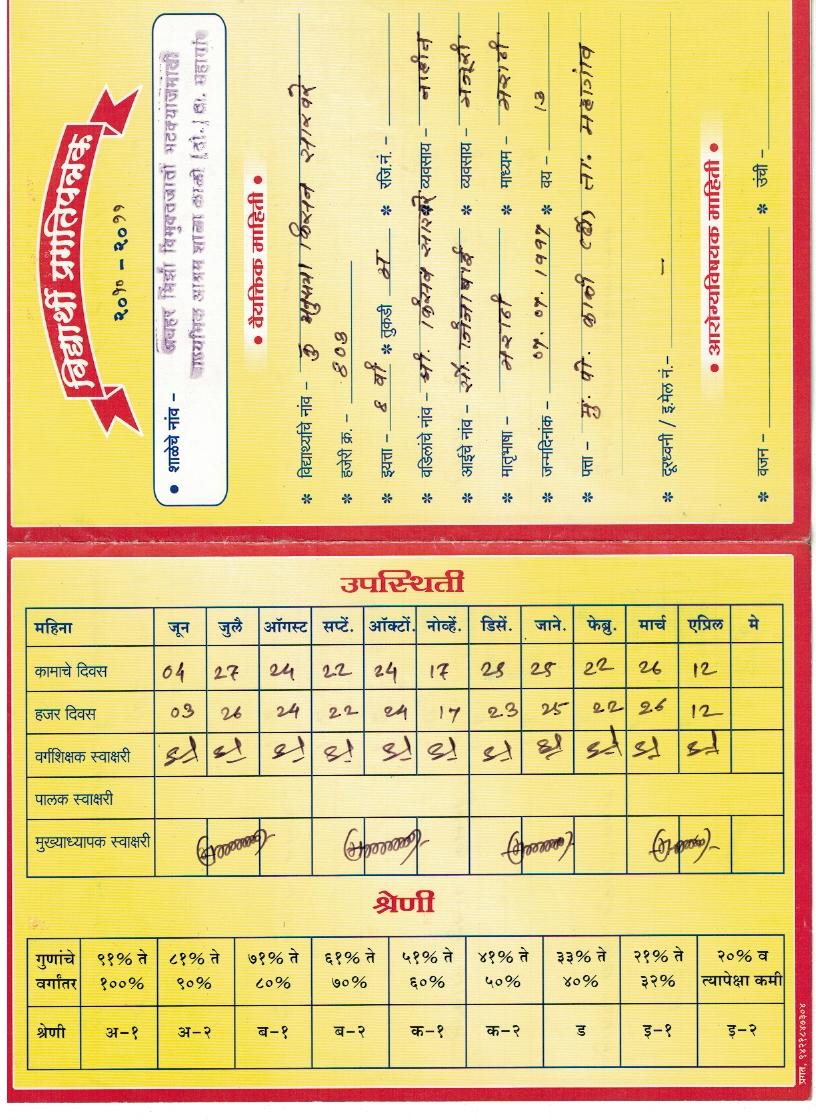 विद्यार्थी प्रगतिपत्रक
२०१० - २०११
• शाळेचे नांव -
जव्हार विद्यी विमुक्तजाती भटक्याजमाती
माध्यमिक आश्रम शाळा काळी (दौ.) ता. महागांव
• वैयक्तिक माहिती •
* विद्यार्थ्याचे नांव - कु किसन
* हजेरी क्र. - ४०३
* इयत्ता - ८ वी * तुकडी अ * रजि.नं. -
* वडिलांचे नांव - श्री. किसन * व्यवसाय -
* आईचे नांव - सौ. * व्यवसाय - मजूरी
* मातृभाषा - मराठी * माध्यम - मराठी
* जन्मदिनांक - ०७. ०७. १९९७ * वय - १३
* पत्ता - मु. पो. काळी (दौ) ता. महागांव
* दूरध्वनी / इ.मेल नं.- —
• आरोग्यविषयक माहिती •
* वजन - * उंची -
उपस्थिती
महिना जून जुलै ऑगस्ट सप्टें. ऑक्टों. नोव्हें. डिसें. जाने. फेब्रु. मार्च एप्रिल मे
कामाचे दिवस 04 27 24 22 24 17 25 22 26 12
हजर दिवस 03 26 24 22 24 17 23 25 22 26 12
वर्गशिक्षक स्वाक्षरी
पालक स्वाक्षरी
मुख्याध्यापक स्वाक्षरी
श्रेणी
गुणांचे वर्गांतर ९१% ते १००% ८१% ते ९०% ७१% ते ८०% ६१% ते ७०% ५१% ते ६०% ४१% ते ५०% ३३% ते ४०% २१% ते ३२% २०% व त्यापेक्षा कमी
श्रेणी अ-१ अ-२ ब-१ ब-२ क-१ क-२ ड इ-१ इ-२
प्रगत, ९४२१८४७३०४